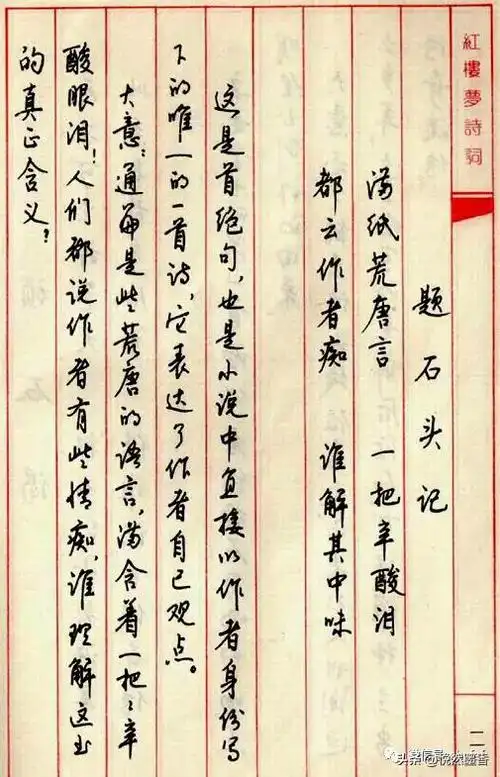 紅樓夢詩詞
题石头记
满纸荒唐言 一把辛酸泪
都云作者痴 谁解其中味
这是首绝句，也是小说中直接以作者身份写
下的唯一的一首诗，它表达了作者自己观点。
大意：通篇是些荒唐的语言，满含着一把把辛
酸眼泪！人们都说作者有些情痴，谁理解这书
的真正含义？
二
头条 @悦然墨香